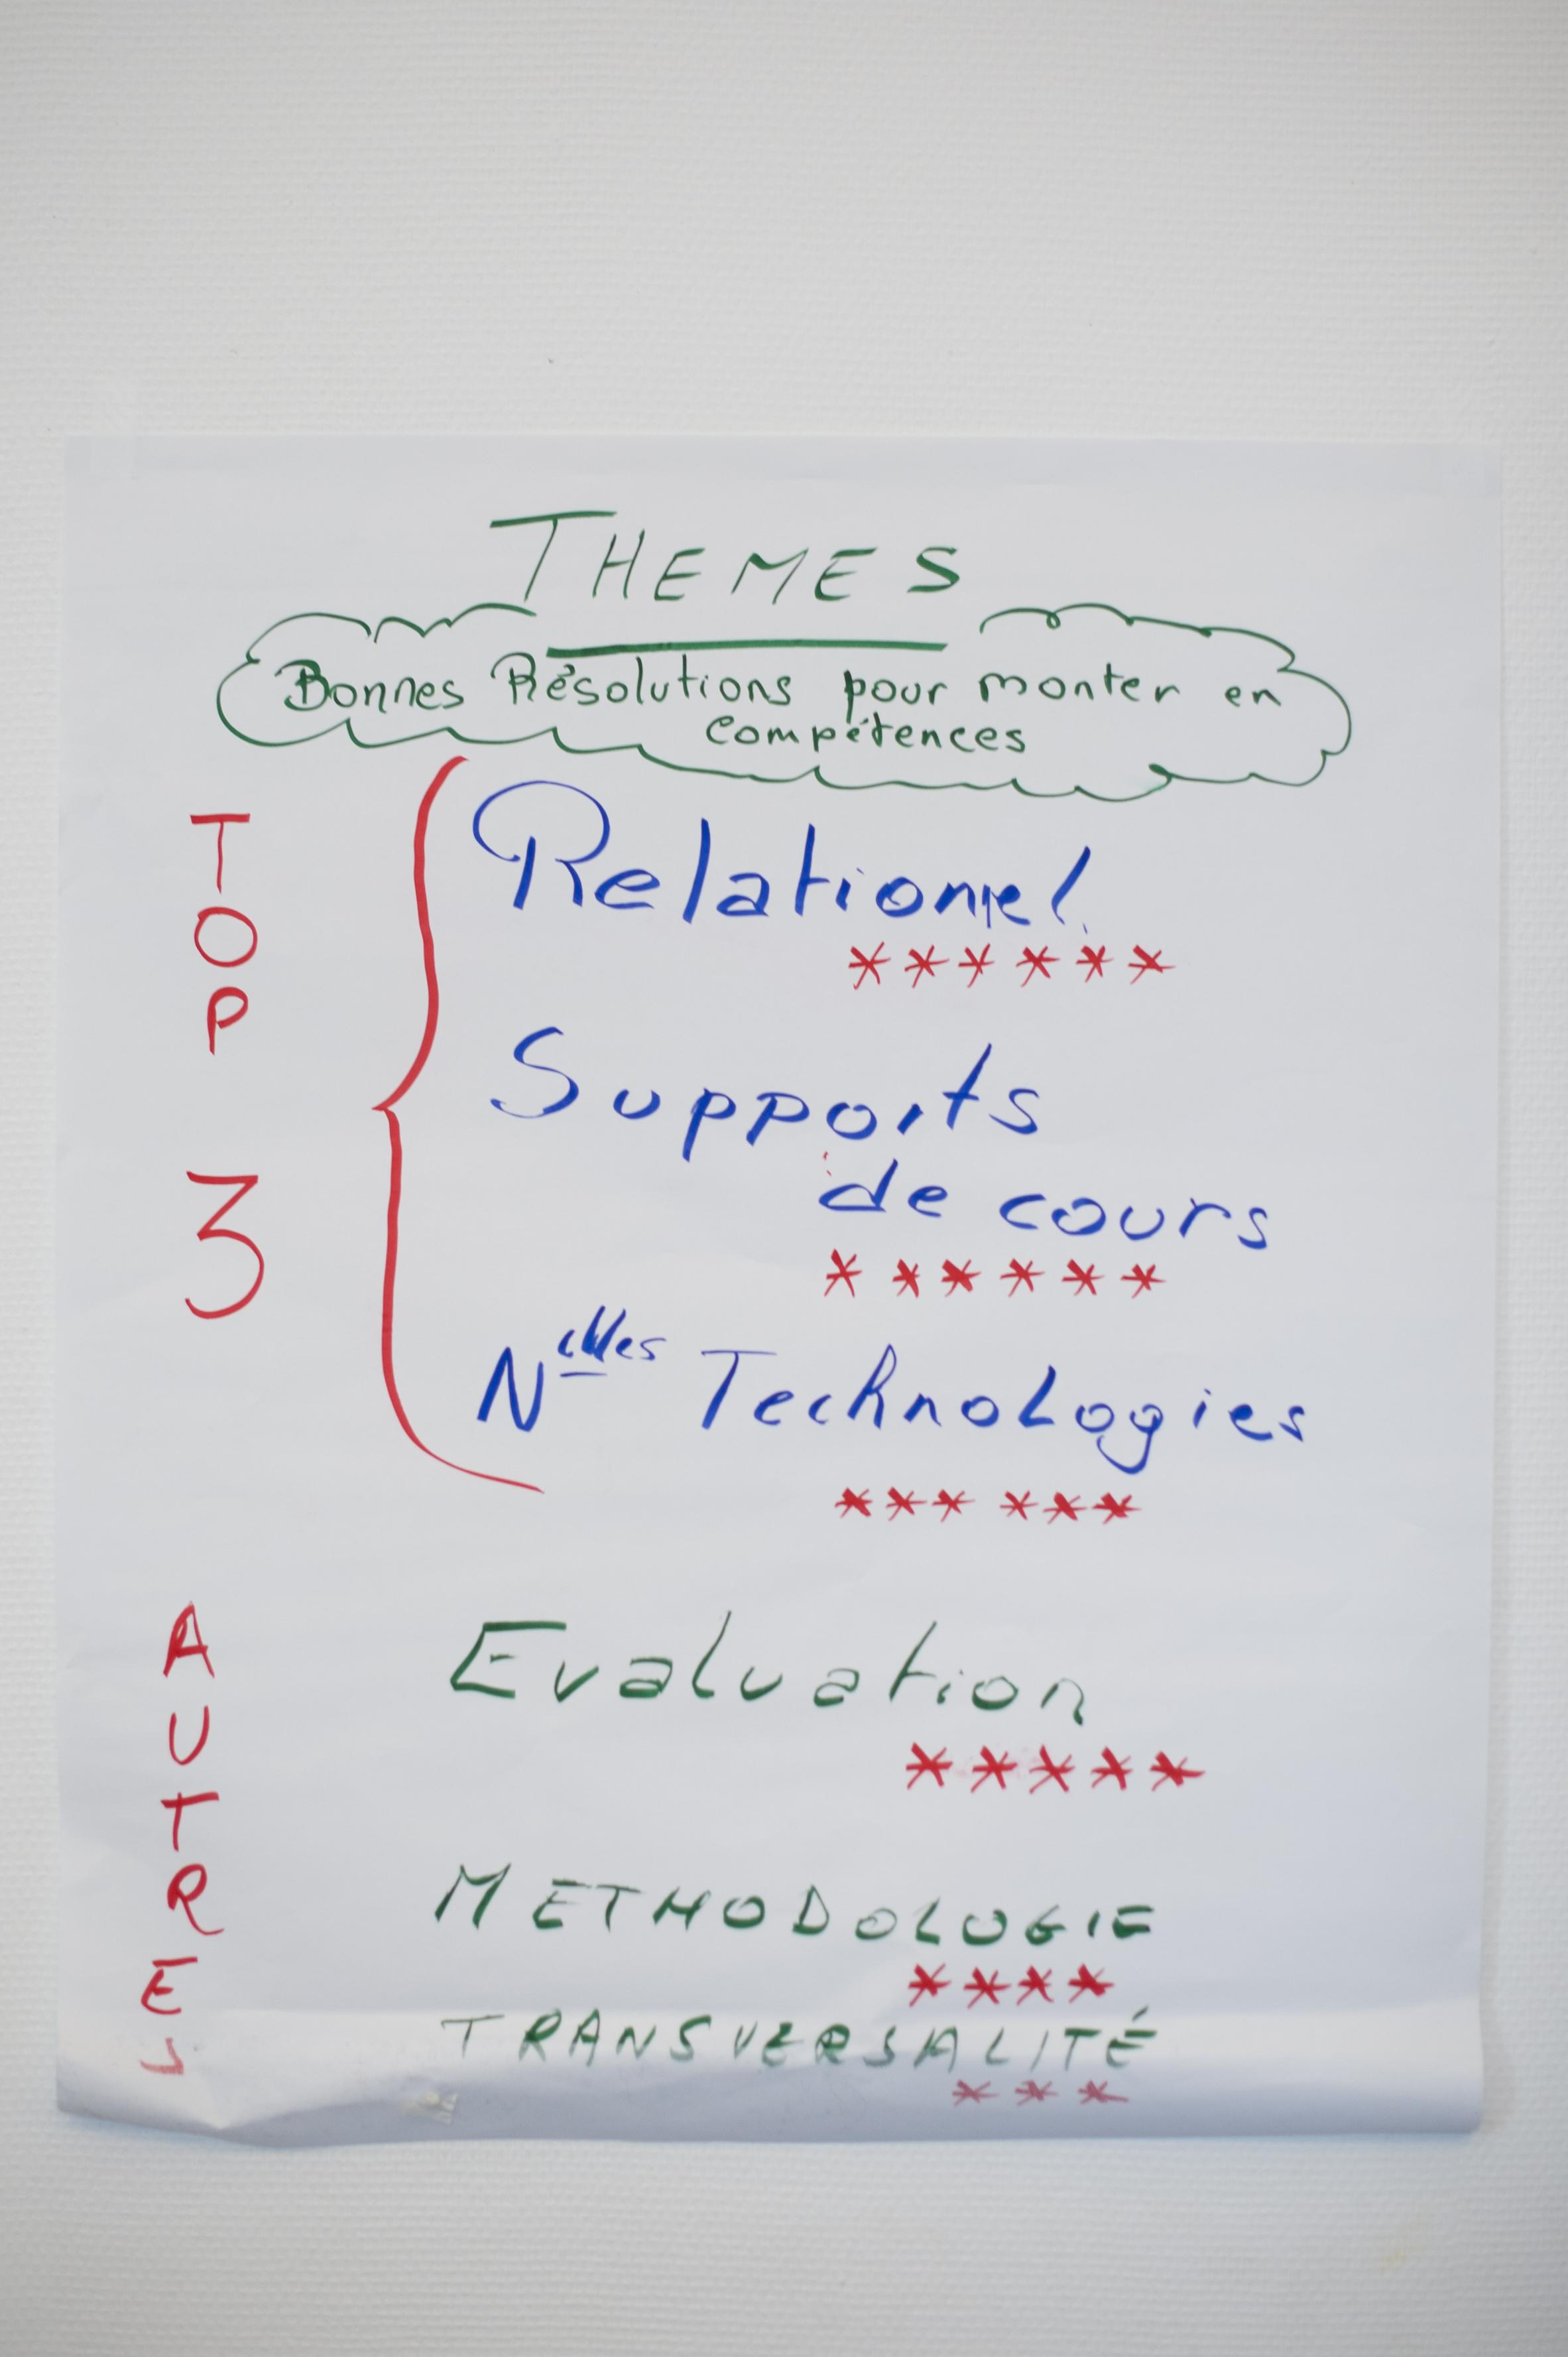 THEMES
Bonnes Résolutions pour monter en
compétences
TOP 3
Relationnel
******
Supports
de cours
******
Nelles Technologies
*** ***
AUTRES
Evaluation
*****
METHODOLOGIE
****
TRANSVERSALITÉ
***